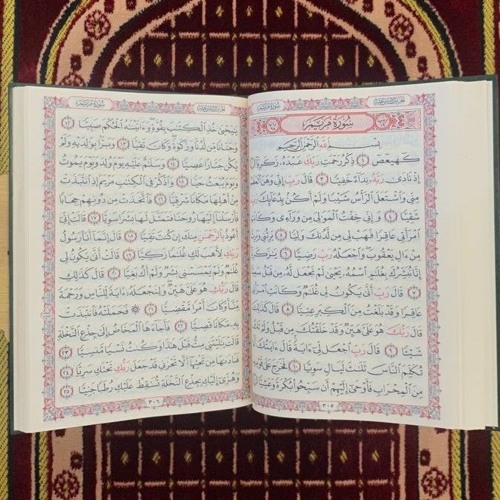 سُورَةُ مَرْيَمَ
سُورَةُ مَرْيَمَ
بِسْمِ اللَّهِ الرَّحْمَٰنِ الرَّحِيمِ
كهيعص ١ ذِكْرُ رَحْمَتِ رَبِّكَ عَبْدَهُ زَكَرِيَّا ٢
إِذْ نَادَىٰ رَبَّهُ نِدَاءً خَفِيًّا ٣ قَالَ رَبِّ إِنِّي وَهَنَ الْعَظْمُ
مِنِّي وَاشْتَعَلَ الرَّأْسُ شَيْبًا وَلَمْ أَكُنْ بِدُعَائِكَ رَبِّ
شَقِيًّا ٤ وَإِنِّي خِفْتُ الْمَوَالِيَ مِنْ وَرَائِي وَكَانَتِ
امْرَأَتِي عَاقِرًا فَهَبْ لِي مِنْ لَدُنْكَ وَلِيًّا ٥ يَرِثُنِي وَيَرِثُ
مِنْ ءَالِ يَعْقُوبَ وَاجْعَلْهُ رَبِّ رَضِيًّا ٦ يَٰزَكَرِيَّا
إِنَّا نُبَشِّرُكَ بِغُلَٰمٍ اسْمُهُ يَحْيَىٰ لَمْ نَجْعَلْ لَهُ مِنْ قَبْلُ سَمِيًّا
٧ قَالَ رَبِّ أَنَّىٰ يَكُونُ لِي غُلَٰمٌ وَكَانَتِ امْرَأَتِي
عَاقِرًا وَقَدْ بَلَغْتُ مِنَ الْكِبَرِ عِتِيًّا ٨ قَالَ كَذَٰلِكَ
قَالَ رَبُّكَ هُوَ عَلَيَّ هَيِّنٌ وَقَدْ خَلَقْتُكَ مِنْ قَبْلُ وَلَمْ تَكُ
شَيْئًا ٩ قَالَ رَبِّ اجْعَلْ لِي ءَايَةً قَالَ ءَايَتُكَ أَلَّا
تُكَلِّمَ النَّاسَ ثَلَٰثَ لَيَالٍ سَوِيًّا ١٠ فَخَرَجَ عَلَىٰ قَوْمِهِ
مِنَ الْمِحْرَابِ فَأَوْحَىٰ إِلَيْهِمْ أَنْ سَبِّحُوا بُكْرَةً وَعَشِيًّا ١١
٣٠٥
سُورَةُ مَرْيَمَ
يَٰيَحْيَىٰ خُذِ الْكِتَٰبَ بِقُوَّةٍ وَءَاتَيْنَٰهُ الْحُكْمَ صَبِيًّا ١٢
وَحَنَانًا مِنْ لَدُنَّا وَزَكَوٰةً وَكَانَ تَقِيًّا ١٣ وَبَرًّا بِوَٰلِدَيْهِ وَلَمْ
يَكُنْ جَبَّارًا عَصِيًّا ١٤ وَسَلَٰمٌ عَلَيْهِ يَوْمَ وُلِدَ وَيَوْمَ يَمُوتُ
وَيَوْمَ يُبْعَثُ حَيًّا ١٥ وَاذْكُرْ فِي الْكِتَٰبِ مَرْيَمَ إِذِ انْتَبَذَتْ
مِنْ أَهْلِهَا مَكَانًا شَرْقِيًّا ١٦ فَاتَّخَذَتْ مِنْ دُونِهِمْ حِجَابًا
فَأَرْسَلْنَا إِلَيْهَا رُوحَنَا فَتَمَثَّلَ لَهَا بَشَرًا سَوِيًّا ١٧ قَالَتْ إِنِّي
أَعُوذُ بِالرَّحْمَٰنِ مِنْكَ إِنْ كُنْتَ تَقِيًّا ١٨ قَالَ إِنَّمَا أَنَا رَسُولُ
رَبِّكِ لِأَهَبَ لَكِ غُلَٰمًا زَكِيًّا ١٩ قَالَتْ أَنَّىٰ يَكُونُ لِي
غُلَٰمٌ وَلَمْ يَمْسَسْنِي بَشَرٌ وَلَمْ أَكُ بَغِيًّا ٢٠ قَالَ كَذَٰلِكِ
قَالَ رَبُّكِ هُوَ عَلَيَّ هَيِّنٌ وَلِنَجْعَلَهُ ءَايَةً لِلنَّاسِ وَرَحْمَةً
مِنَّا وَكَانَ أَمْرًا مَقْضِيًّا ٢١ فَحَمَلَتْهُ فَانْتَبَذَتْ
بِهِ مَكَانًا قَصِيًّا ٢٢ فَأَجَاءَهَا الْمَخَاضُ إِلَىٰ جِذْعِ النَّخْلَةِ
قَالَتْ يَٰلَيْتَنِي مِتُّ قَبْلَ هَٰذَا وَكُنْتُ نَسْيًا مَنْسِيًّا ٢٣
فَنَادَىٰهَا مِنْ تَحْتِهَا أَلَّا تَحْزَنِي قَدْ جَعَلَ رَبُّكِ تَحْتَكِ سَرِيًّا ٢٤
وَهُزِّي إِلَيْكِ بِجِذْعِ النَّخْلَةِ تُسَٰقِطْ عَلَيْكِ رُطَبًا جَنِيًّا ٢٥
٣٠٦